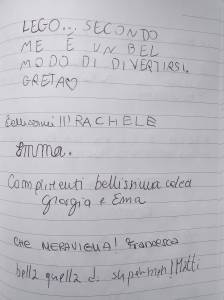 LEGO... SECONDO
ME È UN BEL
MODO DI DIVERTIRSI.
GRETA♡
Bellissimi!!! RACHELE
Emma.
Complimenti bellissima
Giorgia e Ema
CHE MERAVIGLIA! Francesca
bella quella di superman! Matti